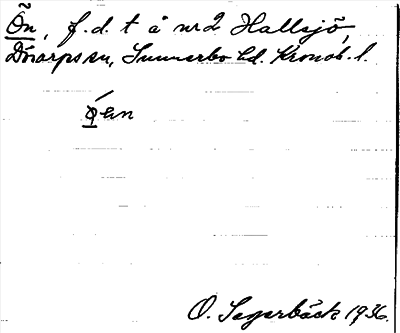 Ön, f.d. t å nr 2 Hallsjö,
Dörarps sn, Sunnerbo hd. Kronob. l.
ö́en
O. Segerbäck 1936.